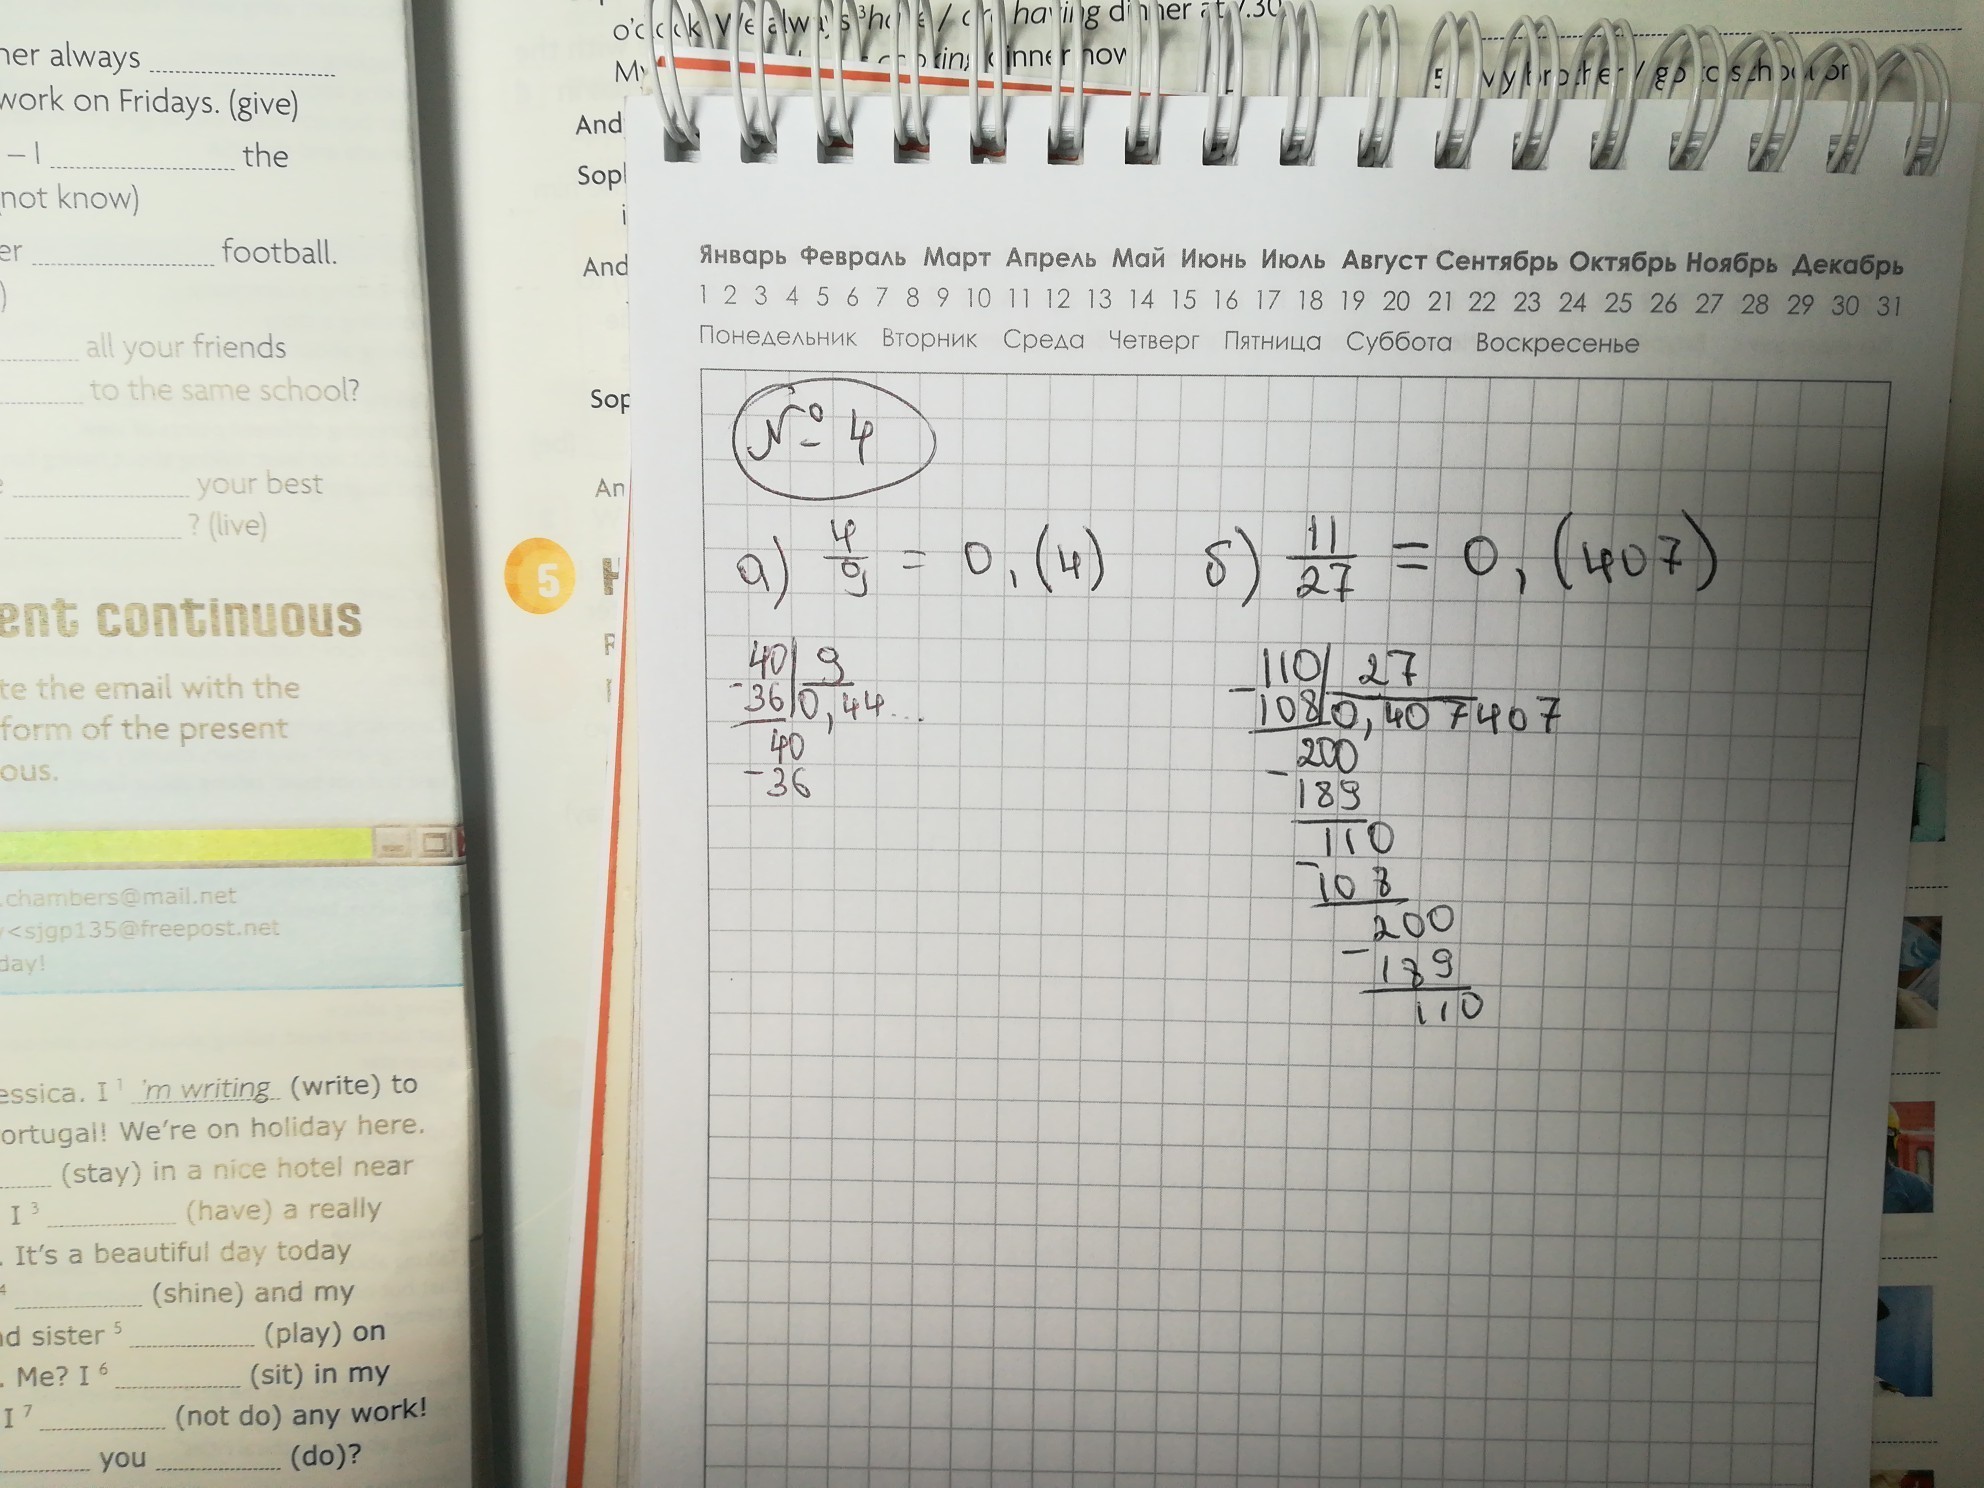 her always
work on Fridays. (give)
– I the
(not know)
er football.
)
all your friends
to the same school?
your best
? (live)
ent continuous
te the email with the
form of the present
ous.
.chambers@mail.net
<sjgp135@freepost.net
day!
essica. I 1 'm writing (write) to
ortugal! We're on holiday here.
(stay) in a nice hotel near
I 3 (have) a really
. It's a beautiful day today
4 (shine) and my
nd sister 5 (play) on
. Me? I 6 (sit) in my
I 7 (not do) any work!
you (do)?
having dinner at 7.30
dinner now
My
And
Soph
i
And
Sop
An
5
Январь Февраль Март Апрель Май Июнь Июль Август Сентябрь Октябрь Ноябрь Декабрь
1 2 3 4 5 6 7 8 9 10 11 12 13 14 15 16 17 18 19 20 21 22 23 24 25 26 27 28 29 30 31
Понедельник Вторник Среда Четверг Пятница Суббота Воскресенье
№ 4
а) 4/9 = 0,(4) б) 11/27 = 0,(407)
40 | 9
-36 | 0,44...
40
-36
110 | 27
-108 | 0,407407
200
-189
110
-108
200
-189
110